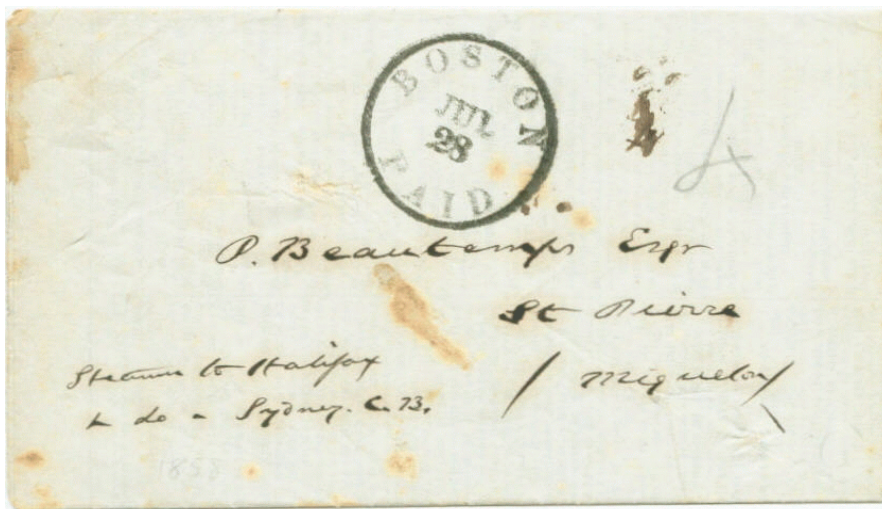 BOSTON
JUL
28
PAID
4
P. Beautemps Esqr
St Pierre
/ Miquelon /
Steamer to Halifax
& do - Sydney. C. B.
1858